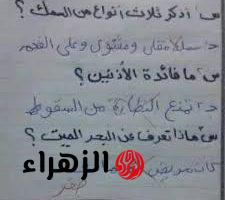 س/ اذكر ثلاث أنواع من السمك ؟
ج/ سمك مقلي ومشوي وعلى الفحم
س/ ما فائدة الأذنين ؟
ج/ تمنع النظارة من السقوط
س/ ماذا تعرف عن البحر الميت ؟
كان مريض
الزهراء
صفر